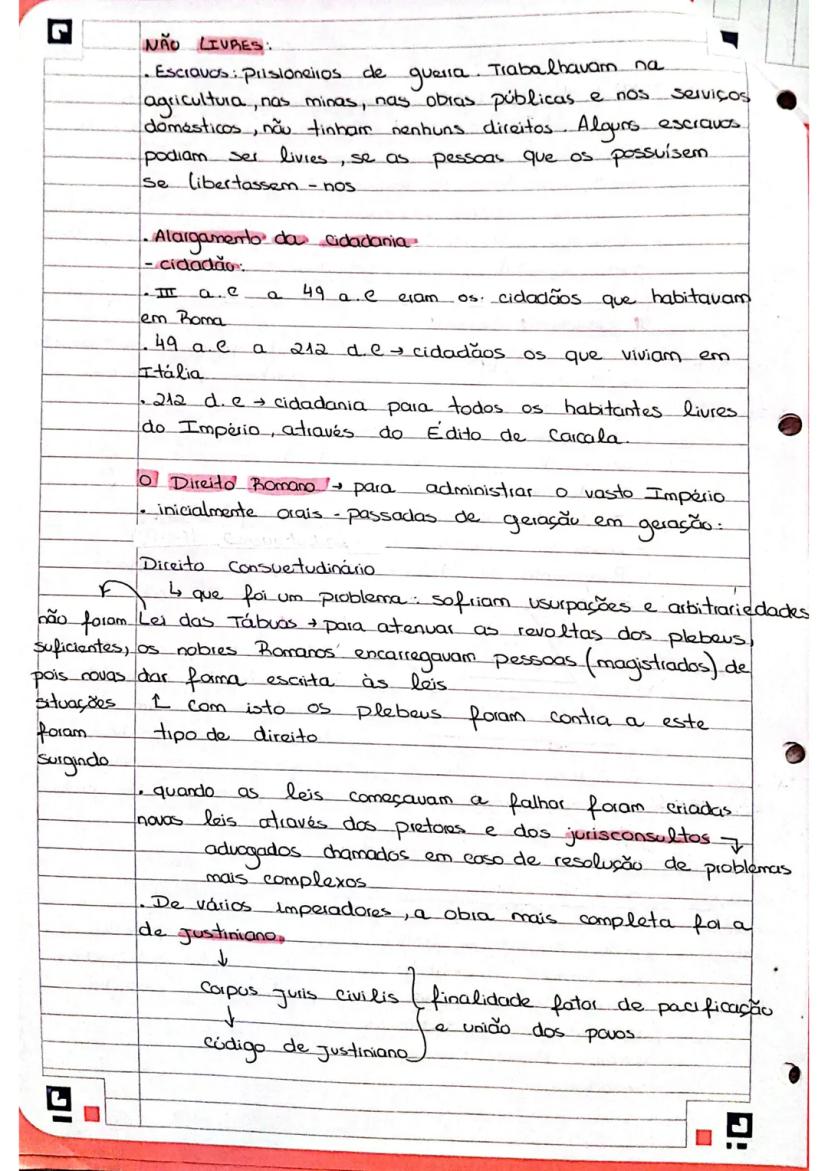 NÃO LIVRES:
. Escravos: prisioneiros de guerra. Trabalhavam na
agricultura, nas minas, nas obras públicas e nos serviços
domésticos, não tinham nenhuns direitos. Alguns escravos
podiam ser livres, se as pessoas que os possuísem
se libertassem - nos
. Alargamento da cidadania
- cidadão:
. III a.c a 49 a.c eram os cidadãos que habitavam
em Roma
. 49 a.c a 212 d.c → cidadãos os que viviam em
Itália
. 212 d.c → cidadania para todos os habitantes livres
do Império, através do Édito de Carcala.
O Direito Romano → para administrar o vasto Império
. inicialmente orais - passadas de geração em geração:
Direito Consuetudinário
↳ que foi um problema: sofriam usurpações e arbitrariedades
Lei das Tábuas → para atenuar as revoltas dos plebeus,
os nobres Romanos encarregavam pessoas (magistrados) de
dar forma escrita às leis
com isto os plebeus foram contra a este
tipo de direito
não foram
suficientes,
pois novas
situações
foram
surgindo
. quando as leis começavam a falhar foram criadas
novas leis através dos pretores e dos jurisconsultos →
advogados chamados em caso de resolução de problemas
mais complexos
. De vários imperadores, a obra mais completa foi a
de Justiniano.
↓
Corpus Juris civilis } finalidade fator de pacificação
↓ e união dos povos
código de Justiniano